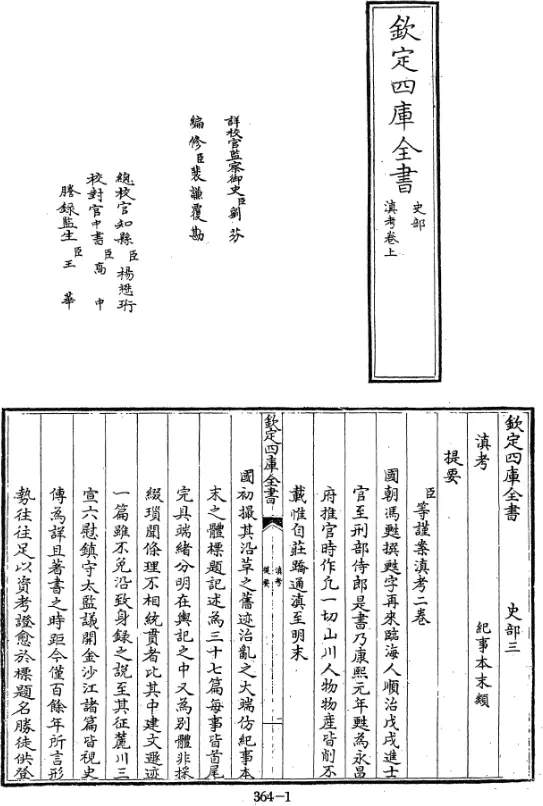 欽定四庫全書
史部
滇考卷上
詳校官監察御史臣劉芬
編修臣裴謙覆勘
總校官知縣臣楊懋珩
校對官中書臣高中
謄錄監生臣王華
欽定四庫全書
史部三
滇考
紀事本末類
提要
臣等謹案滇考二卷
國朝馮甦撰甦字再來臨海人順治戊戌進士
官至刑部侍郎是書乃康熙元年甦為永昌
府推官時作凡一切山川人物物産皆削不
載惟自莊蹻通滇至明末
欽定四庫全書
滇考
提要
一
國初撮其沿革之舊迹治亂之大端仿紀事本
末之體標題記述為三十七篇每事皆首尾
完具端緒分明在輿記之中又為別體非採
綴瑣聞條理不相統貫者比其中建文遯迹
一篇雖不免沿致身錄之說至其征麓川三
宣六慰鎮守太監議開金沙江諸篇皆視史
傳為詳且著書之時距今僅百餘年所言形
勢往往足以資考證愈於標題名勝徒供登
364-1